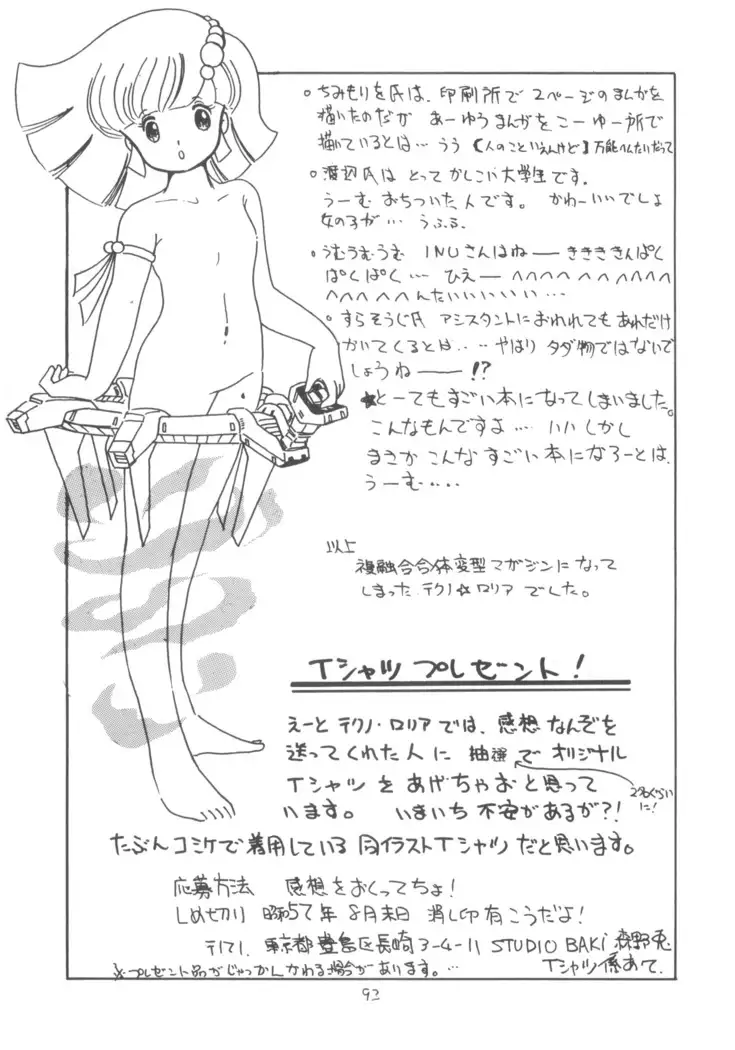 。ちみもりを氏は、印刷所で2ページのまんがを
描いたのだが あーゆうまんがをこーゆー所で
描いているとは… うう 【人のこといえんけど】万能へんたいだって
。渡辺氏は とってかしこい大学生です。
うーむ おちついた人です。 かわーいいでしょ
女の子が… うふる。
。うむうむうむ INUさんはねー きききききんぱく
ぱくぱく… ひえー へへへへへへへへへ
へへへへへんたいいいいいい…
。すらそうじ氏 アシスタントにおわれても あれだけ
かいてくるとは… やはり タダ物ではないで
しょうねー!?
★とーてもすごい本になってしまいました。
こんなもんですよ… ハハ しかし
まさか こんな すごい本になろーとは、
うーむ‥‥
以上
複融合合体変型マガジンになって
しまった テクノ☆ロリア でした。
Tシャツ プレゼント!
えーと テクノ・ロリアでは、感想なんぞを
送ってくれた人に 抽選で オリジナル
Tシャツ を あげちゃおと思って
2名ぐらいに!
います。 いまいち 不安があるが?!
たぶん コミケで着用している 同イラストTシャツ だと思います。
応募方法 感想をおくってちょ!
しめ切り 昭和57年 8月末日 消し印有こうだよ!
東京都豊島区長崎3-4-11 STUDIO BAKI 森野兎
Tシャツ係あて.
※プレゼント品がじゃっかんかわる場合があります。…
93